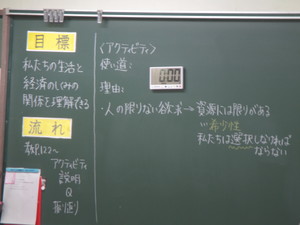 目標
私たちの生活と
経済のしくみの
関係を理解できる
流れ
アクティビティ
説明
Q
振り返り
〈アクティビティ〉
使い道：
0:00
理由：
・人の限りない欲求→資源には限りがある
希少性
私たちは選択しなければ
ならない